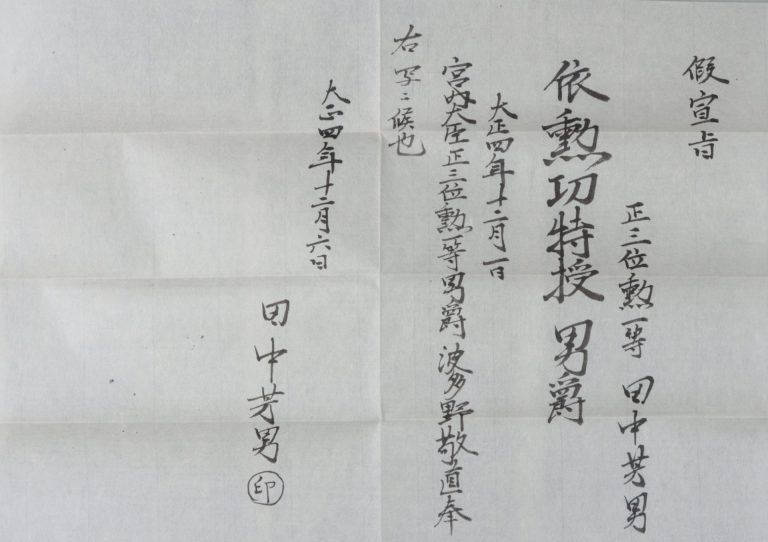 假宣旨
正三位勲一等 田中芳男
依勲功特授男爵
大正四年十二月一日
宮内大臣正三位勲一等男爵波多野敬直奉
右写ニ候也
大正四年十二月六日
田中芳男 印